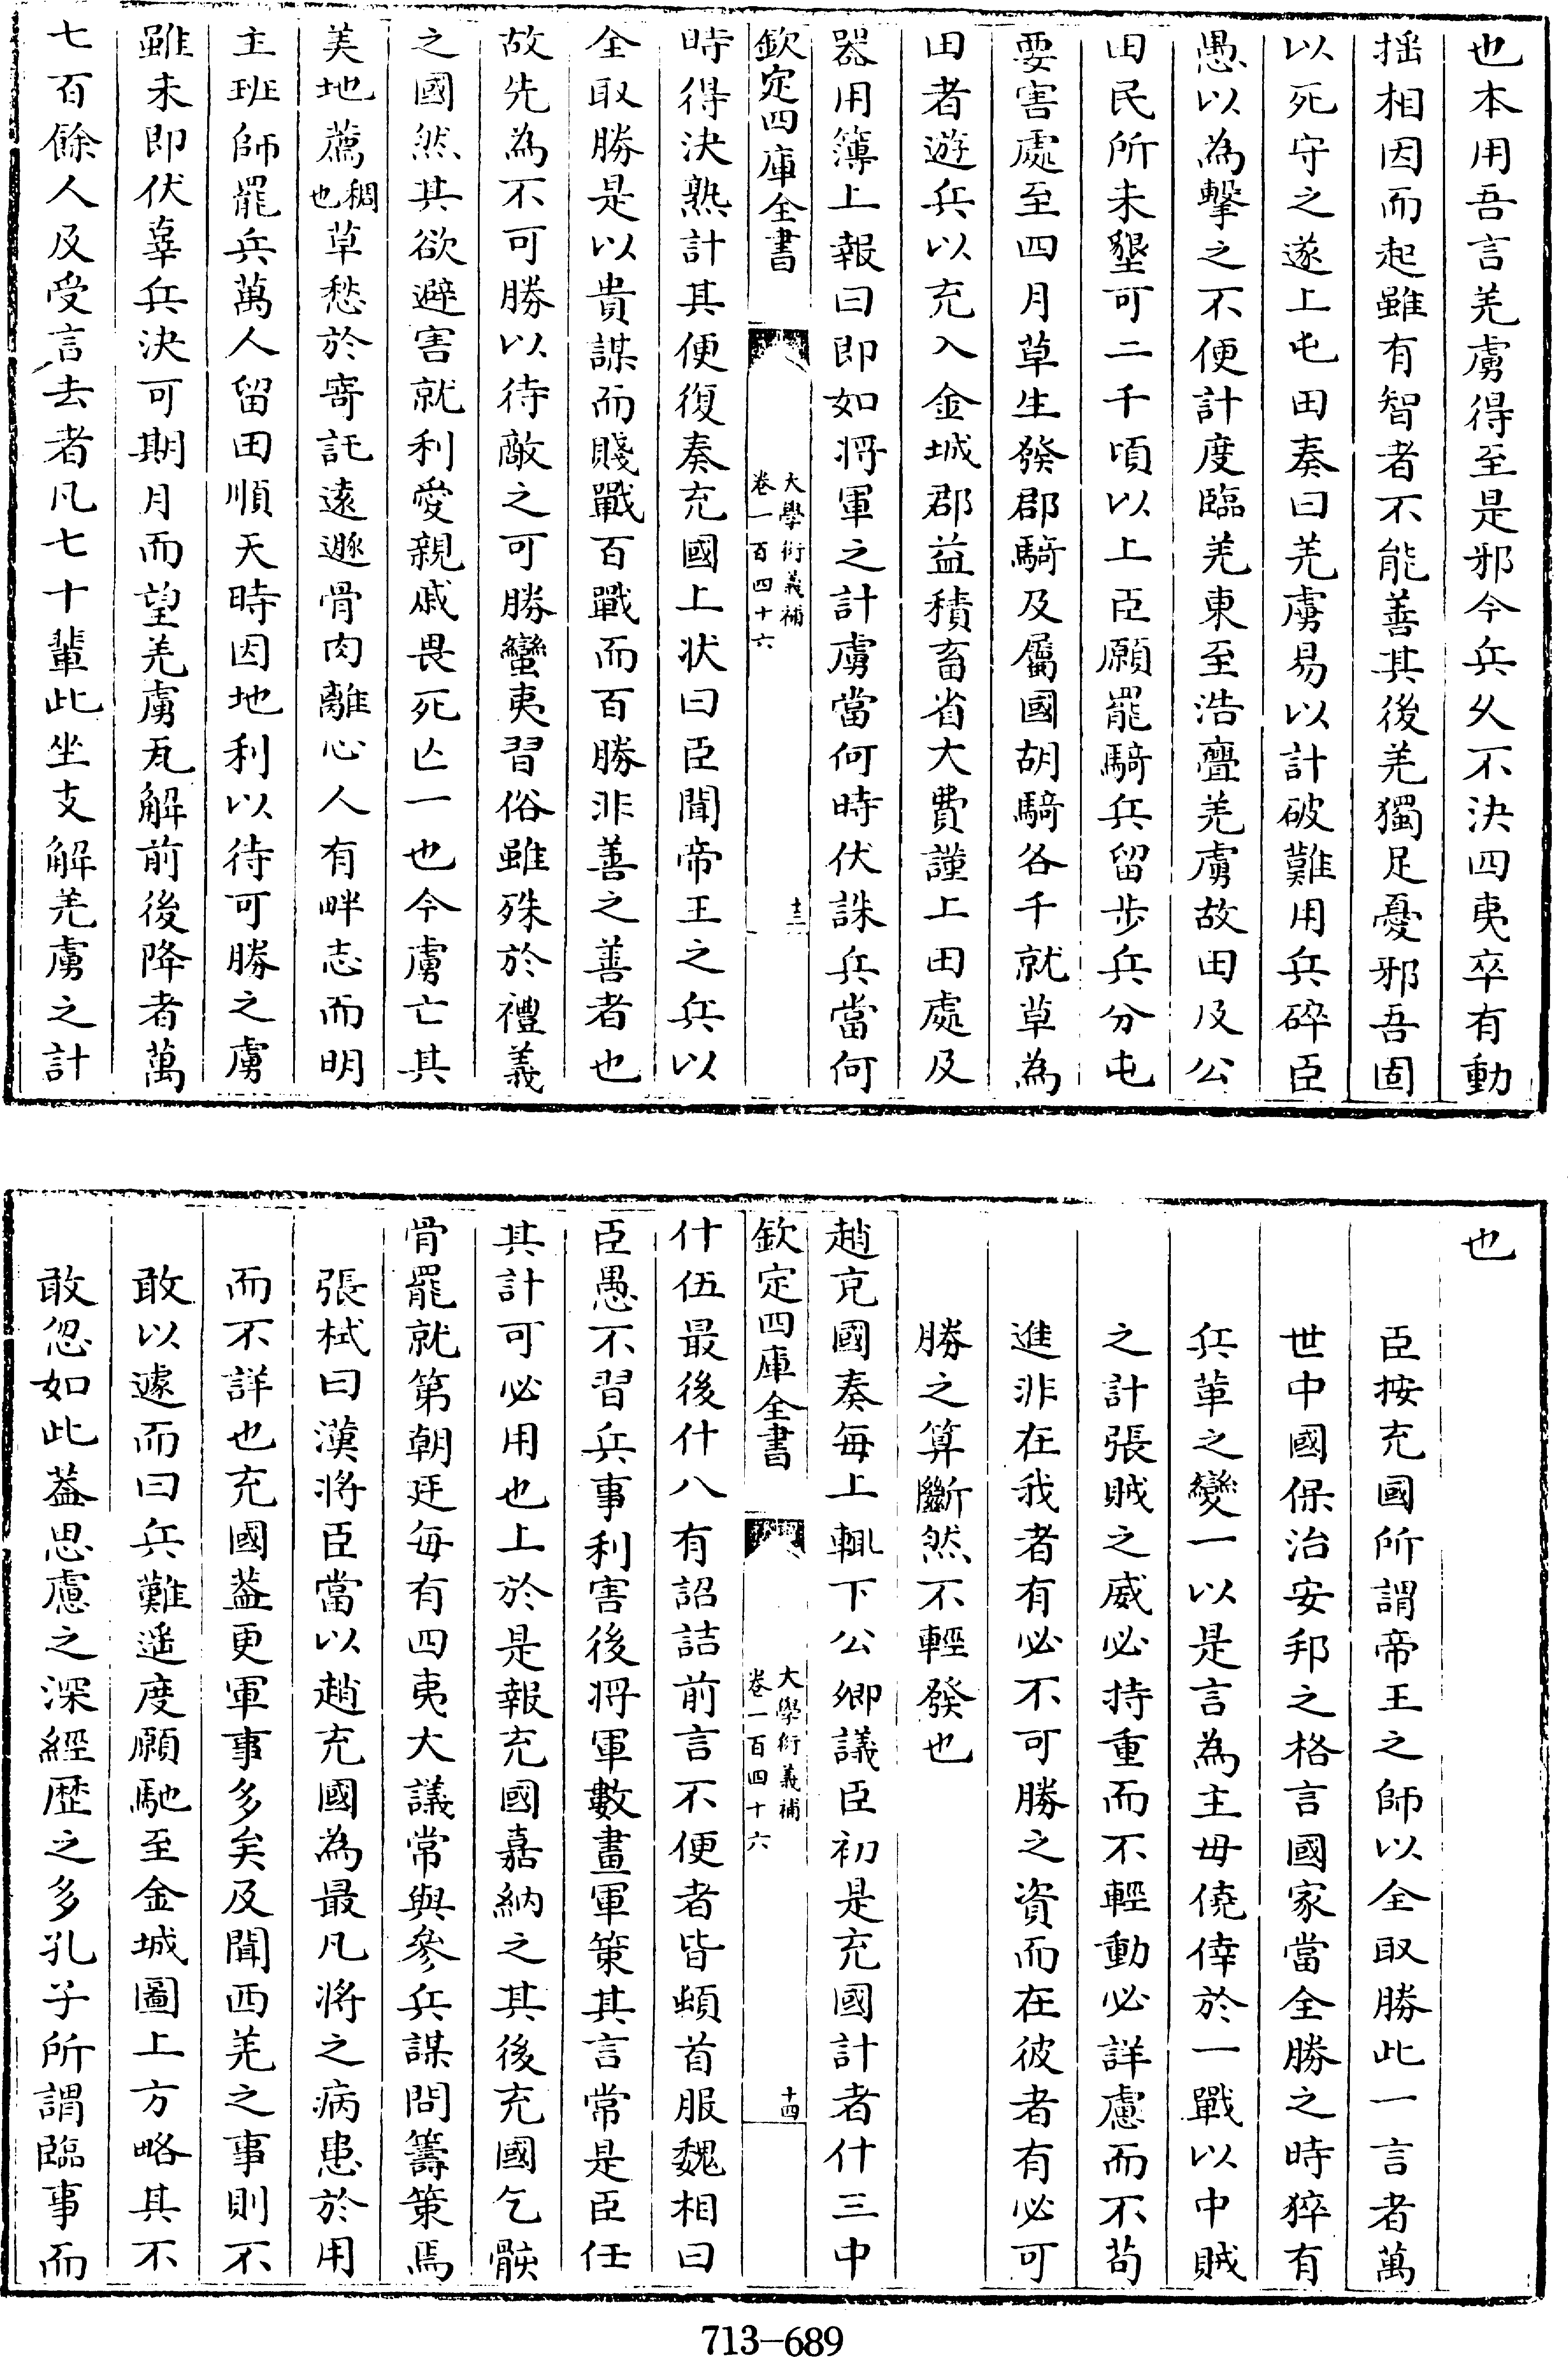 也本用吾言羌虜得至是邪今兵乆不決四夷卒有動
揺相因而起雖有智者不能善其後羌獨足憂邪吾固
以死守之遂上屯田奏曰羌虜易以計破難用兵碎臣
愚以為擊之不便計度臨羌東至浩亹羌虜故田及公
田民所未墾可二千頃以上臣願罷騎兵留步兵分屯
要害處至四月草生發郡騎及屬國胡騎各千就草為
田者遊兵以充入金城郡益積畜省大費謹上田處及
器用簿上報曰即如將軍之計虜當何時伏誅兵當何
欽定四庫全書
大學衍義補
卷一百四十六
十三
時得決熟計其便復奏充國上状曰臣聞帝王之兵以
全取勝是以貴謀而賤戰百戰而百勝非善之善者也
故先為不可勝以待敵之可勝蠻夷習俗雖殊於禮義
之國然其欲避害就利愛親戚畏死亾一也今虜亡其
美地薦稠也草愁於寄託遠遯骨肉離心人有畔志而明
主班師罷兵萬人留田順天時因地利以待可勝之虜
雖未即伏辜兵決可期月而望羌虜瓦解前後降者萬
七百餘人及受言去者凡七十輩此坐支解羌虜之計
也
臣按充國所謂帝王之師以全取勝此一言者萬
世中國保治安邦之格言國家當全勝之時猝有
兵革之變一以是言為主毋僥倖於一戰以中賊
之計張賊之威必持重而不輕動必詳慮而不苟
進非在我者有必不可勝之資而在彼者有必可
勝之算斷然不輕發也
趙充國奏每上輒下公卿議臣初是充國計者什三中
欽定四庫全書
大學衍義補
卷一百四十六
十四
什伍最後什八有詔詰前言不便者皆頓首服魏相曰
臣愚不習兵事利害後將軍數畫軍策其言常是臣任
其計可必用也上於是報充國嘉納之其後充國乞骸
骨罷就第朝廷每有四夷大議常與參兵謀問籌策焉
張栻曰漢將臣當以趙充國為最凡將之病患於用
而不詳也充國葢更軍事多矣及聞西羌之事則不
敢以遽而曰兵難遥度願馳至金城圖上方略其不
敢忽如此葢思慮之深經歴之多孔子所謂臨事而
713-689